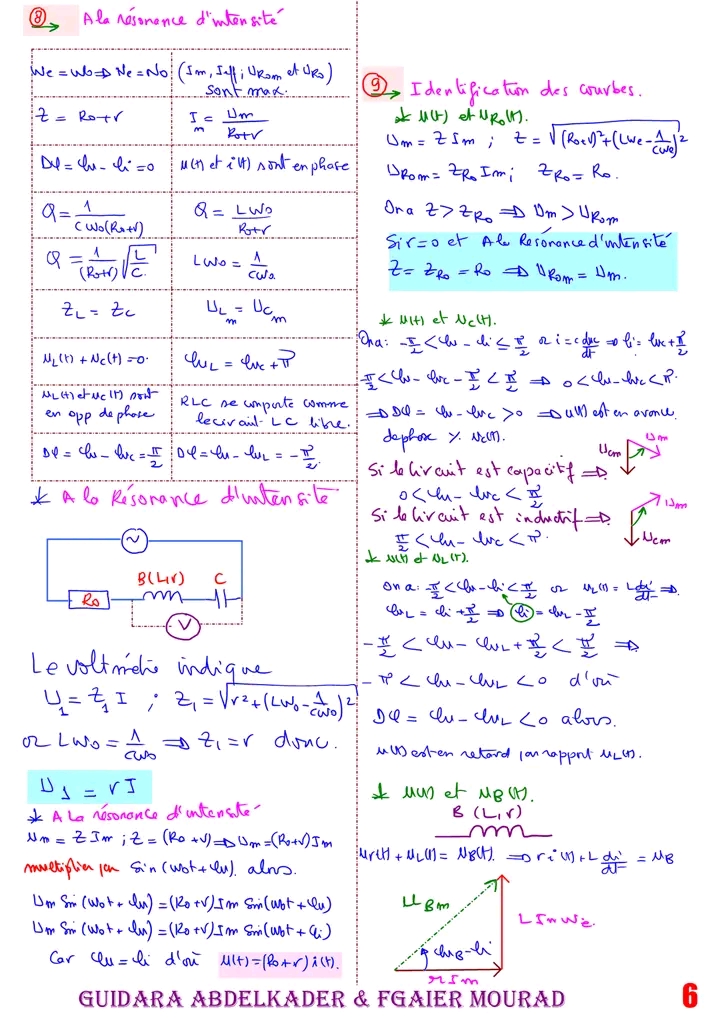 ⑧ A la résonance d'intensité
We = Wo ⇒ Ne = No (Im, Ieff, URom et URo) sont max.
Z = Ro+r Im = Um/(Ro+r)
Δφ = φu - φi = 0 u(t) et i(t) sont en phase
Q = 1/(CWo(Ro+r)) Q = LWo/(Ro+r)
Q = 1/(Ro+r) √(L/C) LWo = 1/(CWo)
ZL = ZC ULm = UCm
uL(t) + uC(t) = 0 φuL = φuC + π
uL(t) et uC(t) sont en opp de phase RLC se comporte comme le circuit LC libre.
Δφ = φu - φuC = π/2 Δφ = φu - φuL = -π/2
↓ A la Résonance d'intensité
~
Ro B(L,r) C
V
Le voltmètre indique
U1 = Z1 I ; Z1 = √(r² + (LWo - 1/(CWo))²)
or LWo = 1/(CWo) ⇒ Z1 = r donc.
U1 = rI
↓ A La résonance d'intensité
Um = Z Im ; Z = (Ro + r) ⇒ Um = (Ro+r) Im
multiplier par Sin(Wot + φu). alors.
Um Sin(Wot + φu) = (Ro+r) Im Sin(Wot + φu)
Um Sin(Wot + φu) = (Ro+r) Im Sin(Wot + φi)
Car φu = φi d'où u(t) = (Ro+r) i(t).
⑨ Identification des courbes.
↓ u(t) et uRo(t).
Um = Z Im ; Z = √((Ro+r)² + (LWe - 1/(CWe))²
URom = ZRo Im ; ZRo = Ro.
On a Z > ZRo ⇒ Um > URom
Si r=0 et A la Résonance d'intensité
Z = ZRo = Ro ⇒ URom = Um.
↓ u(t) et uC(t).
On a: -π/2 < φu - φi ≤ π/2 or i = C duC/dt ⇒ φi = φuC + π/2
-π/2 < φu - φuC - π/2 < π/2 ⇒ 0 < φu - φuC < π.
⇒ Δφ = φu - φuC > 0 ⇒ u(t) est en avance
de phase % uC(t).
UCm Um
Si le Circuit est capacitif ⇒
0 < φu - φuC < π/2
Si le Circuit est inductif ⇒
Um
UCm
π/2 < φu - φuC < π
↓ u(t) et uL(t).
On a: -π/2 < φu - φi < π/2 or uL(t) = L di/dt ⇒
φuL = φi + π/2 ⇒ φi = φuL - π/2
-π/2 < φu - φuL + π/2 < π/2 ⇒
-π < φu - φuL < 0 d'où
Δφ = φu - φuL < 0 alors.
u(t) est en retard par rapport uL(t).
↓ u(t) et uB(t).
B (L,r)
ur(t) + uL(t) = uB(t). ⇒ r i(t) + L di/dt = uB
UBm
L Im We
φuB - φi
r Im
GUIDARA ABDELKADER & FGAIER MOURAD 6